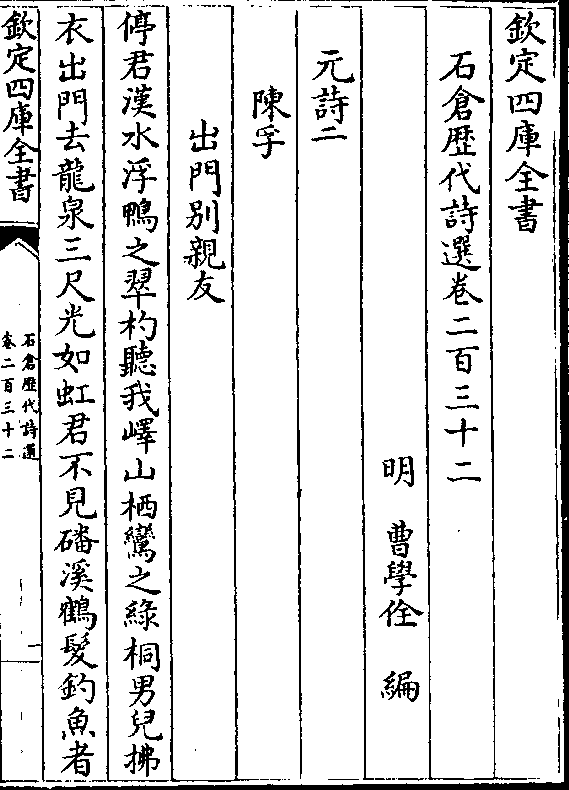 欽定四庫全書
石倉歷代詩選卷二百三十二
明 曹學佺 編
元詩二
陳孚
出門別親友
停君漢水浮鴨之翠杓聽我嶧山栖鸞之綠桐男兒拂
衣出門去龍泉三尺光如虹君不見磻溪鶴髮釣魚者
欽定四庫全書
石倉歷代詩選
卷二百三十二
一